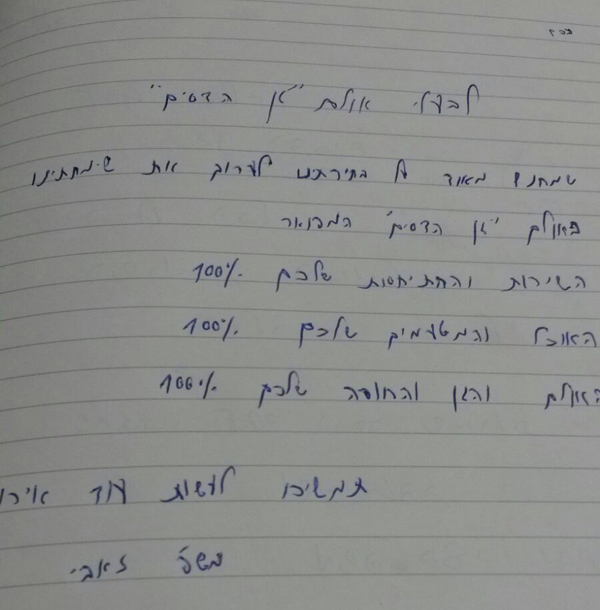 בס״ד
לבעלי אולם "גן הדסים"
שמחנו מאוד על בחירתנו לערוך את שימחתינו
באולם "גן הדסים" המפואר
השירות והתייחסות שלכם 100%
האוכל והמטעמים שלכם 100%
האולם והגן והחופה שלכם 100%
תמשיכו לעשות עוד